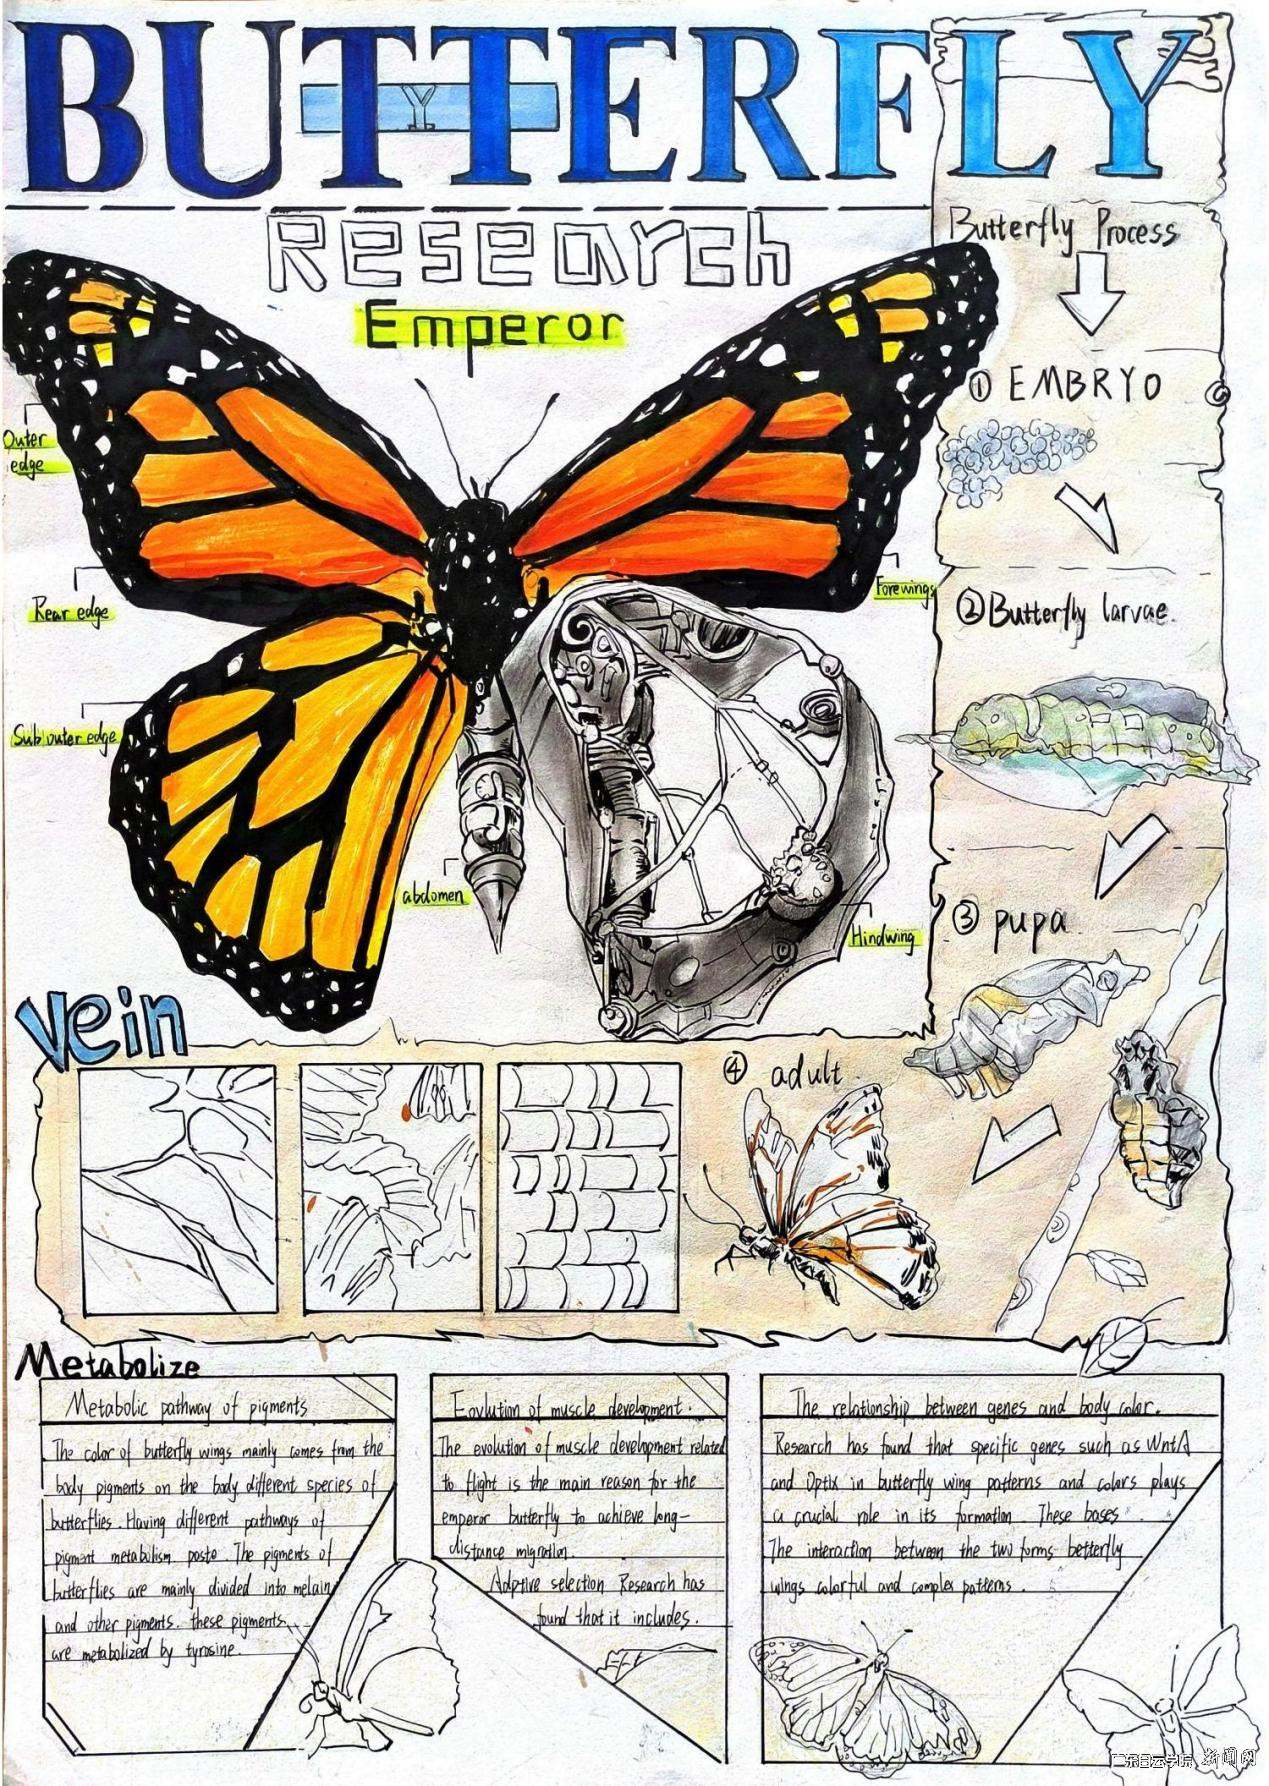 BUTTERFLY
Y
Research
Emperor
Outer
edge
Rear edge
Sub outer edge
abdomen
Forewings
Hindwing
Butterfly Process
① EMBRYO
② Butterfly larvae.
③ pupa
④ adult.
Vein
Metabolize
Metabolic pathway of pigments
The color of butterfly wings mainly comes from the
body pigments on the body different species of
butterflies. Having different pathways of
pigment metabolism posto. The pigments of
butterflies are mainly divided into melain
and other pigments. these pigments.
are metabolized by tyrosine.
Eovlution of muscle development.
The evolution of muscle development related
to flight is the main reason for the
emperor butterfly to achieve long-
distance migration.
Adptive selection Research has
found that it includes.
The relationship between genes and body color.
Research has found that specific genes such as WntA
and Optix in butterfly wing patterns and colors plays
a crucial role in its formation. These bases.
The interaction between the two forms betterfly
wings colorful and complex patterns.
广东白云学院 新闻网